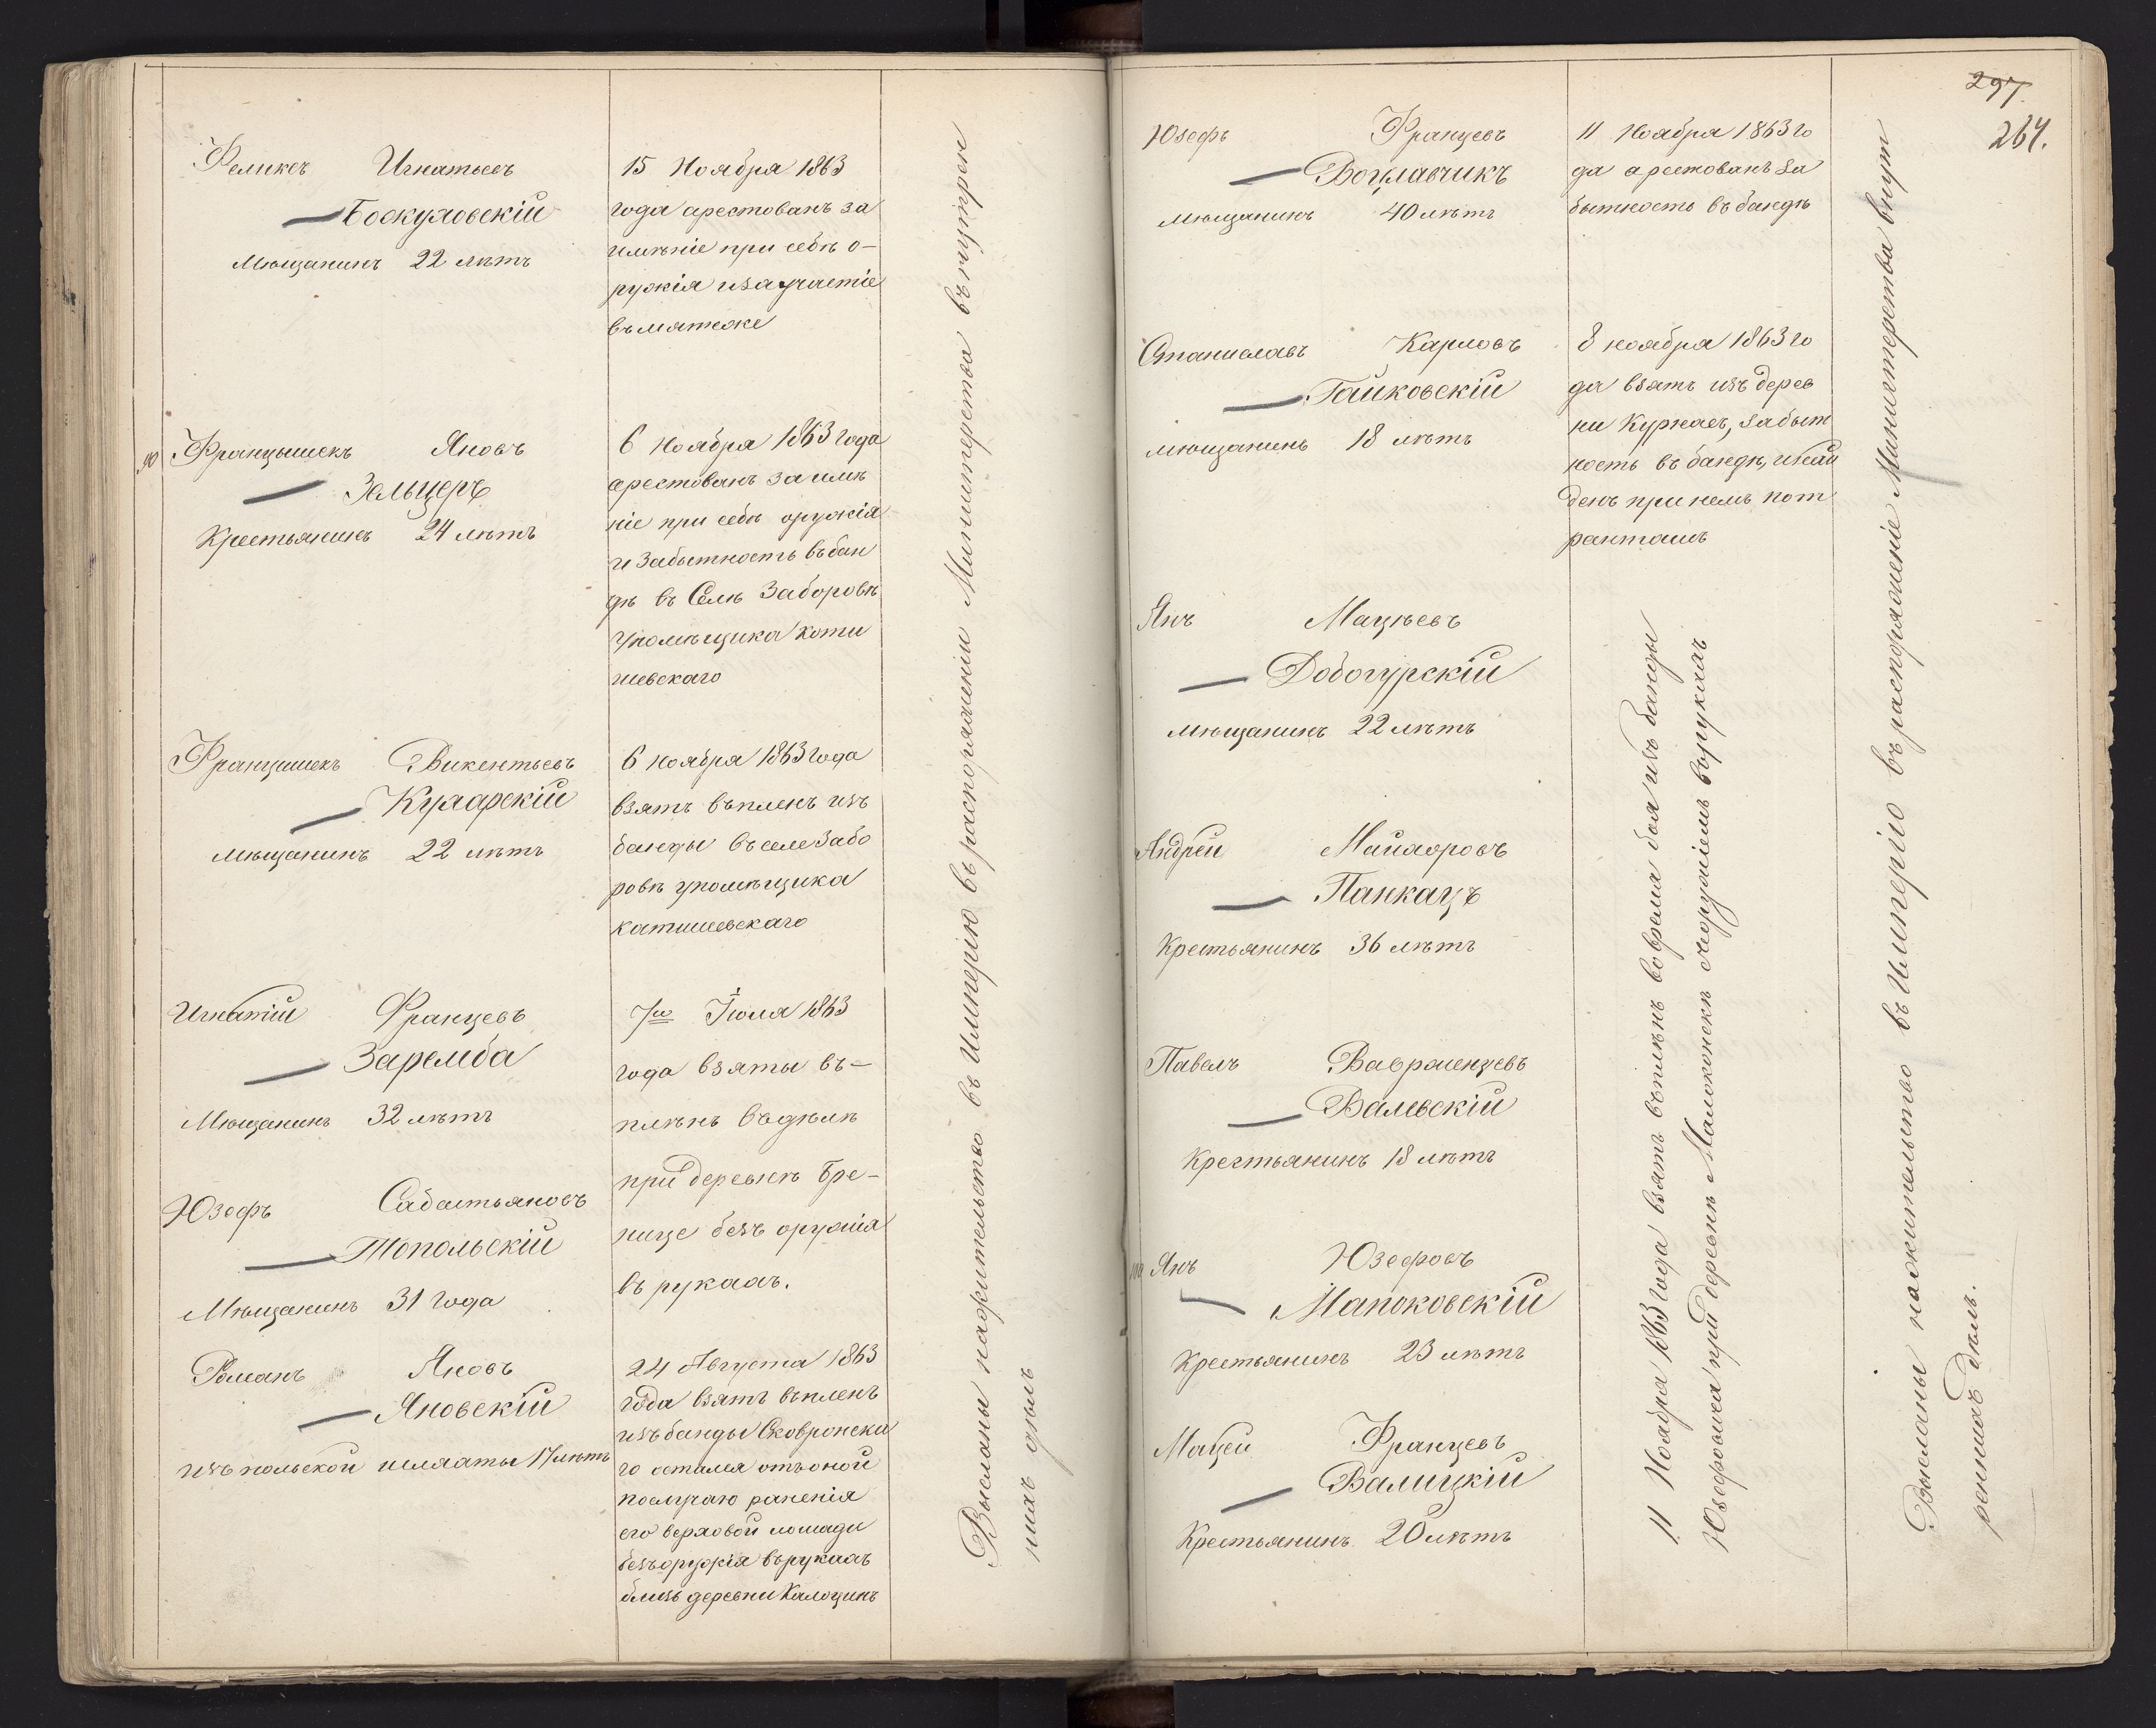 Феликсъ Игнатьевъ
Боскуловскій
Мѣщанинъ 22 лѣтъ
15 Ноября 1863
года арестованъ за
имѣніе при себѣ о-
ружія и за участіе
въ мятеже
90 Францышекъ Яновъ
Зельцеръ
Крестьянинъ 24 лѣтъ
6 Ноября 1863 года
арестованъ за имѣ
ніе при себѣ оружія
и за бытность въ бан
дѣ въ Селѣ Заборовѣ
у помѣщика Коти
шевскаго
Францишекъ Викентьевъ
Куларскій
Мѣщанинъ 22 лѣтъ
6 ноября 1863 года
взятъ въ пленъ изъ
банды въ селе Забо
ровѣ у помѣщика
Катишевскаго
Игнатій Францевъ
Заремба
Мѣщанинъ 32 лѣтъ
7го Іюля 1863
года взяты въ-
плѣнъ въ дѣлѣ
при деревнѣ Бре-
нице безъ оружія
въ рукахъ.
Юзефъ Сабастьяновъ
Топольскій
Мѣщанинъ 31 года
Романъ Яновъ
Яновскій
изъ польской шляхты 17 лѣтъ
24 Августа 1863
года взятъ въ пленъ
изъ банды Сковронска
го остался отъ оной
по случаю раненія
его верховой лошади
безъ оружія въ рукахъ
близъ деревни Калоцинъ
Высланы на жительство въ Имперію въ распоряженіи Министерства внутрен
нихъ дѣлъ
297.
264.
Юзефъ Францевъ
Богулавчикъ
мѣщанинъ 40 лѣтъ
11 Ноября 1863 го
да арестованъ за
бытность въ бандѣ
Станиславъ Карловъ
Гайковскій
мѣщанинъ 18 лѣтъ
8 ноября 1863 го
да взятъ изъ дерев
ни Куркаев, за быт
ность въ бандѣ, и най
денъ при немъ пот
ранташъ
Янъ Мацѣевъ
Добогурскій
мѣщанинъ 22 лѣтъ
Андрей Майаоровъ
Панкацъ
Крестьянинъ 36 лѣтъ
Павелъ Вавраенцевъ
Валевскій
Крестьянинъ 18 лѣтъ
100 Янъ Юзефовъ
Мапоковскій
Крестьянинъ 23 лѣтъ
Мацей Францевъ
Валицкій
Крестьянинъ 20 лѣтъ
11 Ноября 1863 года взятъ въ плѣнъ во время боя изъ банды
Юзефовича при деревнѣ Малоконскѣ съ оружіемъ въ рукахъ
Высланы на жительство въ Имперію въ распоряженіе Министерства внут
реннихъ дѣлъ.